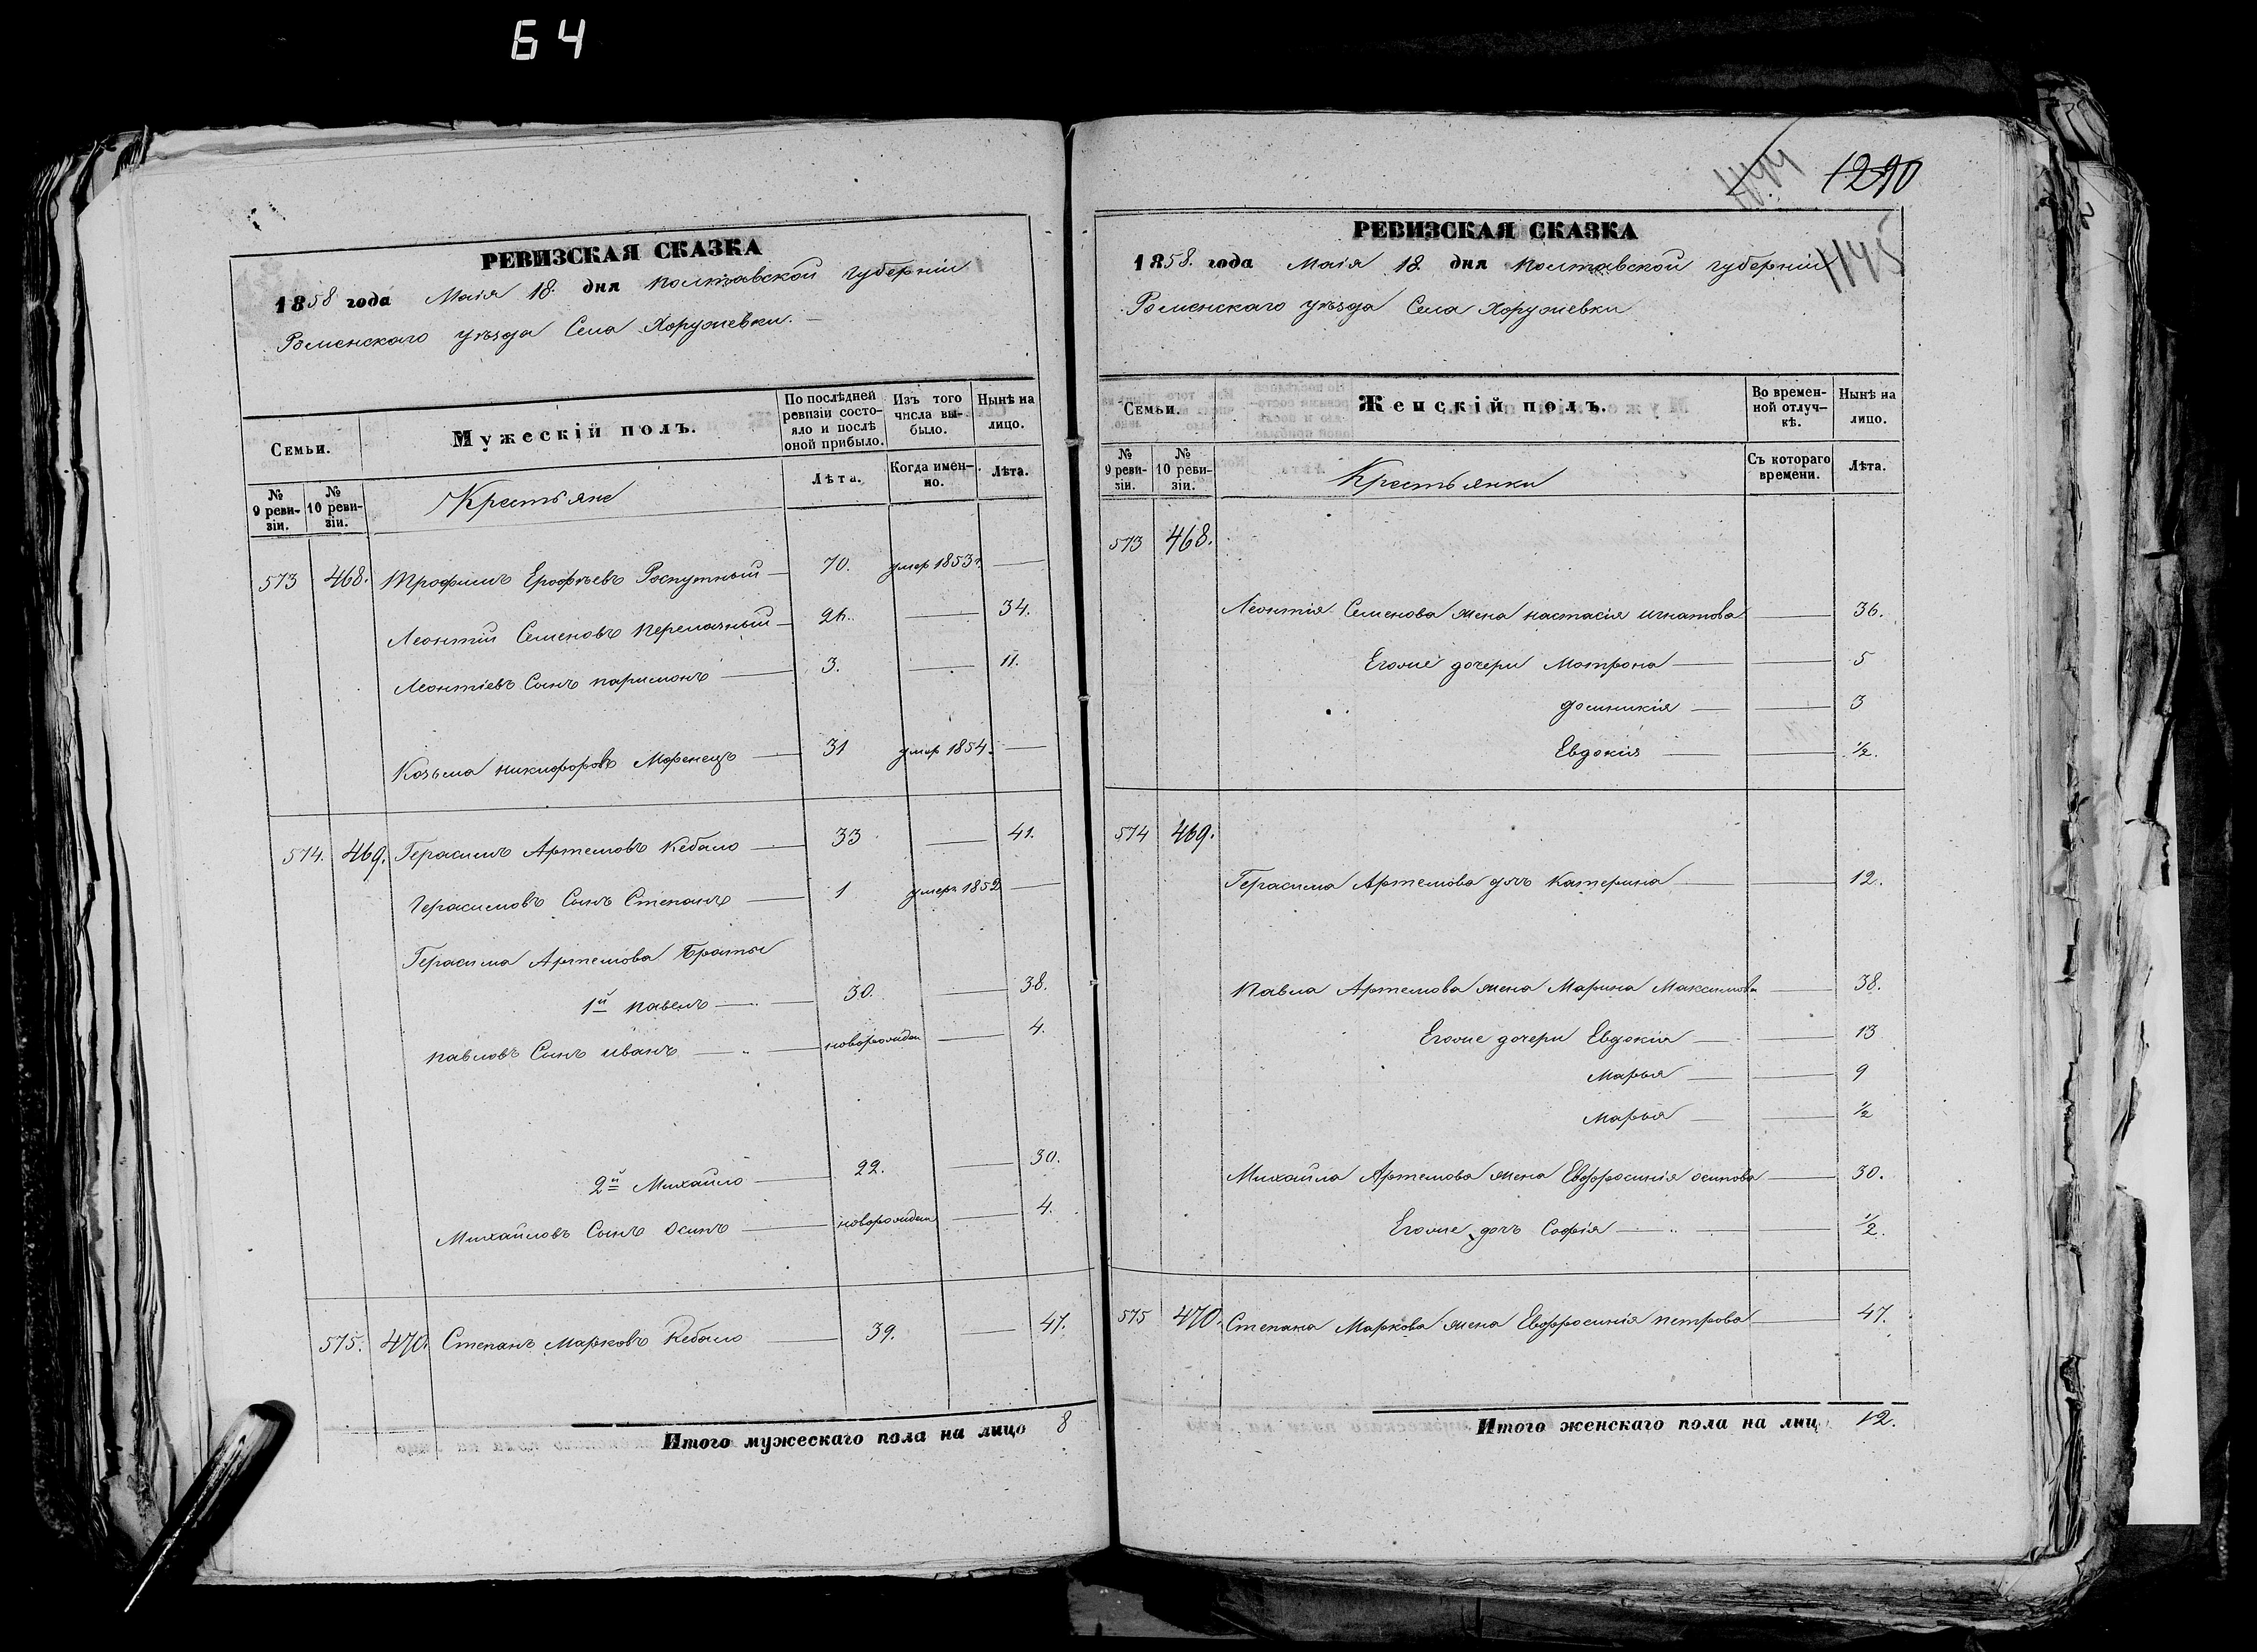 64
РЕВИЗСКАЯ СКАЗКА
1858 года Маія 18. дня полтавской губерніи
Роменскаго уѣзда Села Хоружевки.
Семьи.
Мужескій полъ.
По послѣдней ревизіи состояло и послѣ оной прибыло.
Изъ того числа выбыло.
Нынѣ на лицо.
№ 9 ревизіи.
№ 10 ревизіи.
Крестьяне
Лѣта.
Когда именно.
Лѣта.
573 468. Трофимъ Ерофѣевъ Роспутный 70. умер 1853 г.
Леонтий Семеновъ Перемачный 26. 34.
Леонтіевъ Сынъ паримонъ 3. 11.
Козьма никифоровъ Моренецъ 31 умер 1854.
574. 469. Герасимъ Артемовъ Кебало 33 41.
Герасимовъ Сынъ Степанъ 1 умеръ 1852
Герасима Артемова Браты
1й павелъ 30. 38.
павловъ Сынъ иванъ новорожден 4.
2й Михайло 22. 30.
Михайловъ Сынъ Осипъ новорожден 4.
575. 470. Степанъ Марковъ Кебало 39. 47.
Итого мужескаго пола на лицо 8
1290
1145
РЕВИЗСКАЯ СКАЗКА
1858. года Маія 18. дня полтавской губерніи
Роменскаго уѣзда Села Хоружевки
Семьи.
Женскій полъ.
Во временной отлучкѣ.
Нынѣ на лицо.
№ 9 ревизіи.
№ 10 ревизіи.
Крестьянки
Съ котораго времени.
Лѣта.
573 468.
Леонтія Семенова жена настасія игнатова 36.
Егоже дочери Мотрона 5
домникія 3
Евдокія 1/2.
574 469.
Герасима Артемова дочь Катерина 12.
павла Артемова жена Марина Максимова 38.
Егоже дочери Евдокія 13
Марья 9
Марья 1/2
Михайла Артемова жена Евфросинія осипова 30.
Егоже дочь Софія 1/2.
575 470. Степана Маркова жена Евфросинія петрова 47.
Итого женскаго пола на лицо 12.